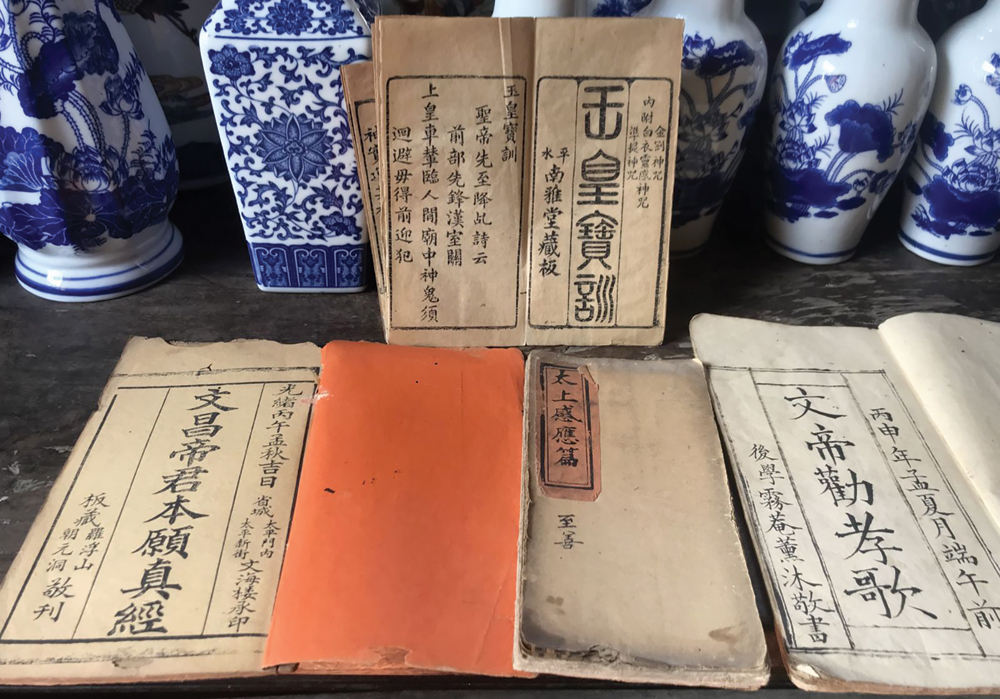 金剛神咒
內附白衣靈感神咒
準提神咒
玉皇寶訓
平水
南雅堂藏板
玉皇寶訓
聖帝先至降此詩云
前部先鋒漢室關
上皇車輦臨人間廟中神鬼須
迴避毋得前迎犯
光緒丙午孟秋吉日
省城太平門內
太平新街
文海楼承印
文昌帝君本願真經
板藏羅浮山
朝元洞
敬刊
太上感應篇
至善
丙申年孟夏月端午前
文帝勸孝歌
後學霧菴薰沐敬書